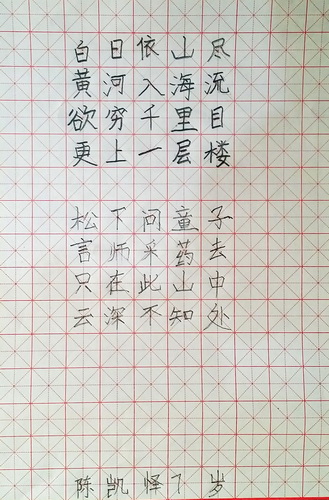 白日依山尽
黄河入海流
欲穷千里目
更上一层楼
松下问童子
言师采药去
只在此山中
云深不知处
陈凯怿7岁